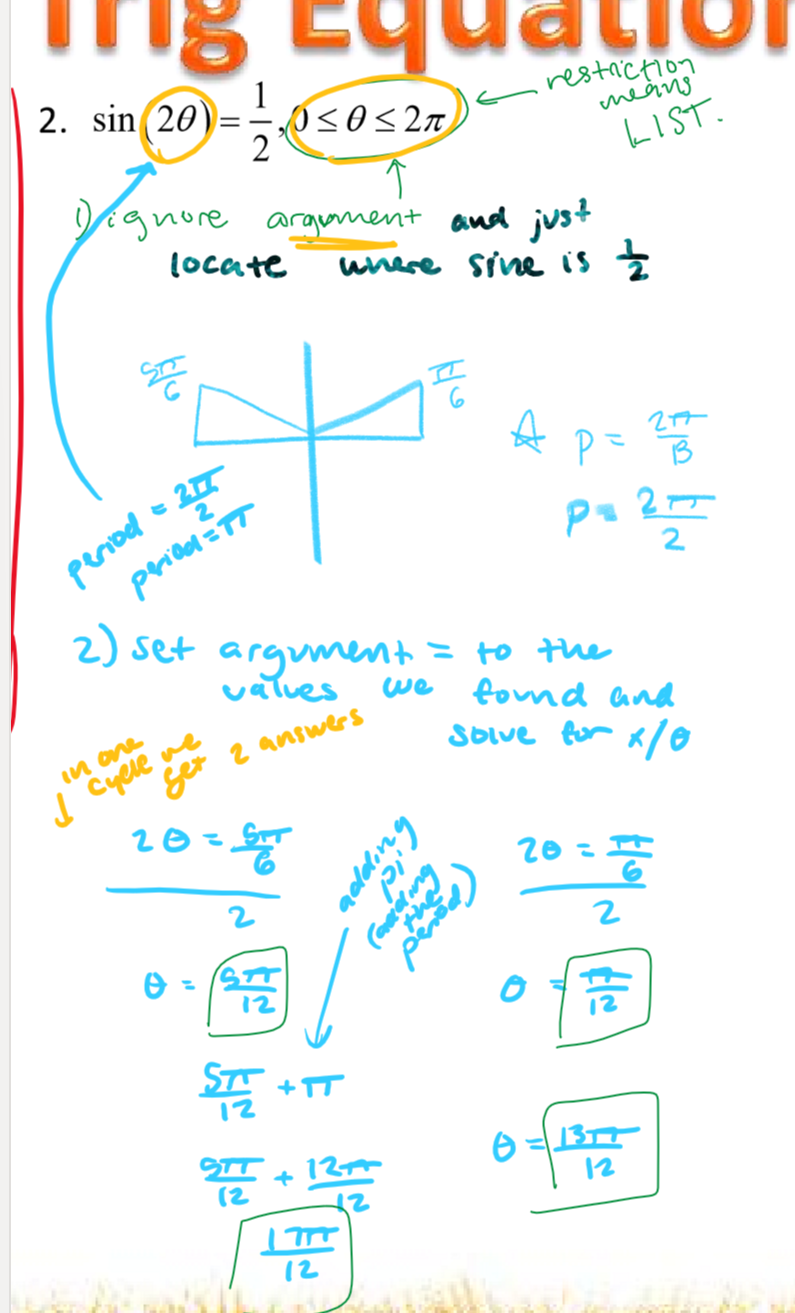 Trig Equation
2. sin(2θ) = 1/2, 0 ≤ θ ≤ 2π
restriction
means
LIST.
1) ignore argument and just
locate where sine is 1/2
5π/6
π/6
p = 2π/B
p = 2π/2
period = 2π/2
period = π
2) set argument = to the
values we found and
solve for x/θ
in one
cycle we
get 2 answers
2θ = 5π/6
2
θ = 5π/12
adding
pi
(adding
the
period)
5π/12 + π
5π/12 + 12π/12
17π/12
2θ = π/6
2
θ = π/12
θ = 13π/12